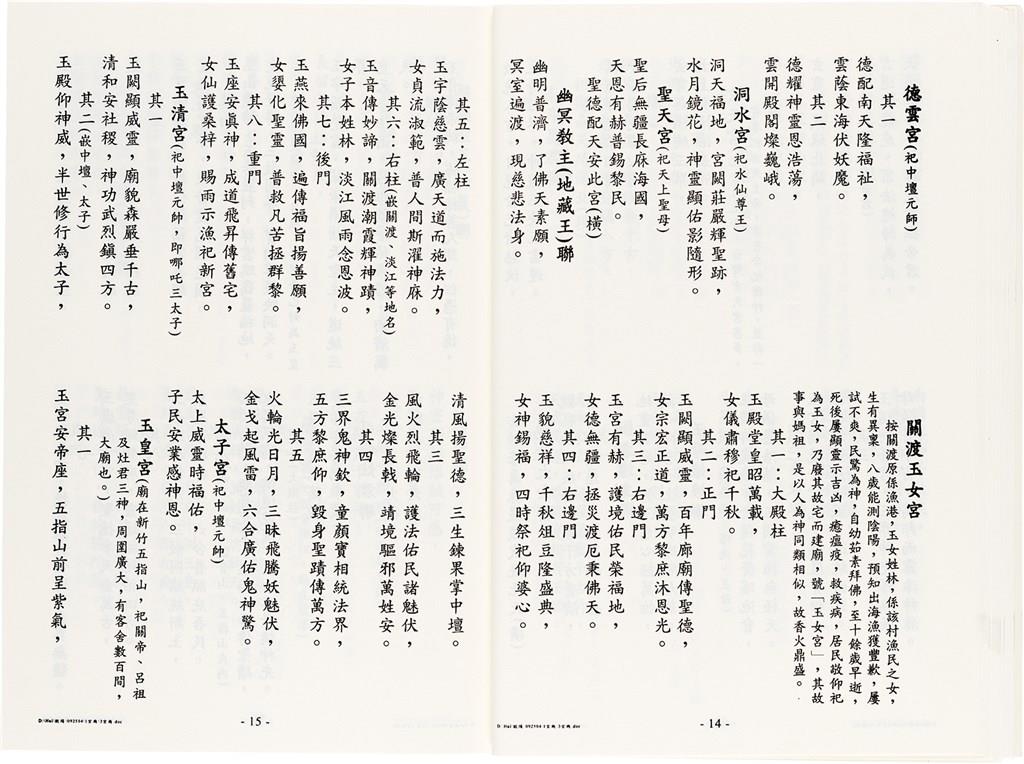 德雲宮(祀中壇元帥)
其一
德配南天隆福祉,
雲蔭東海伏妖魔。
其二
德耀神靈恩浩蕩,
雲開殿閣燦巍峨。
洞水宮(祀水仙尊王)
洞天福地,宮闕莊嚴輝聖跡,
水月鏡花,神靈顯佑影隨形。
聖天宮(祀天上聖母)
聖后無疆長庥海國,
天恩有赫普錫黎民。
聖德配天安此宮(橫)
幽冥教主(地藏王)聯
幽明普濟,了佛天素願,
冥室遍渡,現慈悲法身。
關渡玉女宮
按關渡原係漁港,玉女姓林,係該村漁民之女,
生有異稟,八歲能測陰陽,預知出海漁獲豐歉,屢
試不爽,民驚為神,自幼茹素拜佛,至十餘歲早逝,
死後屢顯靈示吉凶,癒瘟疫,救疾病,居民敬仰祀
為玉女,乃廢其故宅而建廟,號「玉女宮」,其故
事與媽祖,是以人為神同類相似,故香火鼎盛。
其一:大殿柱
玉殿堂皇昭萬載,
女儀肅穆祀千秋。
其二:正門
玉闕顯威靈,百年廊廟傳聖德,
女宗宏正道,萬方黎庶沐恩光。
其三:右邊門
玉宮有赫,護境佑民榮福地,
女德無疆,拯災渡厄秉佛天。
其四:右邊門
玉貌慈祥,千秋俎豆隆盛典,
女神錫福,四時祭祀仰婆心。
- 14 -
其五:左柱
玉宇蔭慈雲,廣天道而施法力,
女貞流淑範,普人間斯濯神庥。
其六:右柱(嵌關渡、淡江等地名)
玉音傳妙諦,關渡潮霞輝神蹟,
女子本姓林,淡江風雨念恩波。
其七:後門
玉燕來佛國,遍傳福旨揚善願,
女嬃化聖靈,普救凡苦拯群黎。
其八:重門
玉座安真神,成道飛昇傳舊宅,
女仙護桑梓,賜雨示漁祀新宮。
玉清宮(祀中壇元帥,即哪吒三太子)
其一
玉闕顯威靈,廟貌森嚴垂千古,
清和安社稷,神功武烈鎮四方。
其二(嵌中壇、太子)
玉殿仰神威,半世修行為太子,
清風揚聖德,三生鍊果掌中壇。
其三
風火烈飛輪,護法佑民諸魅伏,
金光燦長戟,靖境驅邪萬姓安。
其四
三界鬼神欽,童顏寶相統法界,
五方黎庶仰,毀身聖蹟傳萬方。
其五
火輪光日月,三昧飛騰妖魅伏,
金戈起風雷,六合廣佑鬼神驚。
太子宮(祀中壇元帥)
太上威靈時福佑,
子民安業感神恩。
玉皇宮(廟在新竹五指山,祀關帝、呂祖
及灶君三神,周圍廣大,有客舍數百間,
大廟也。)
其一
玉宮安帝座,五指山前呈紫氣,
- 15 -